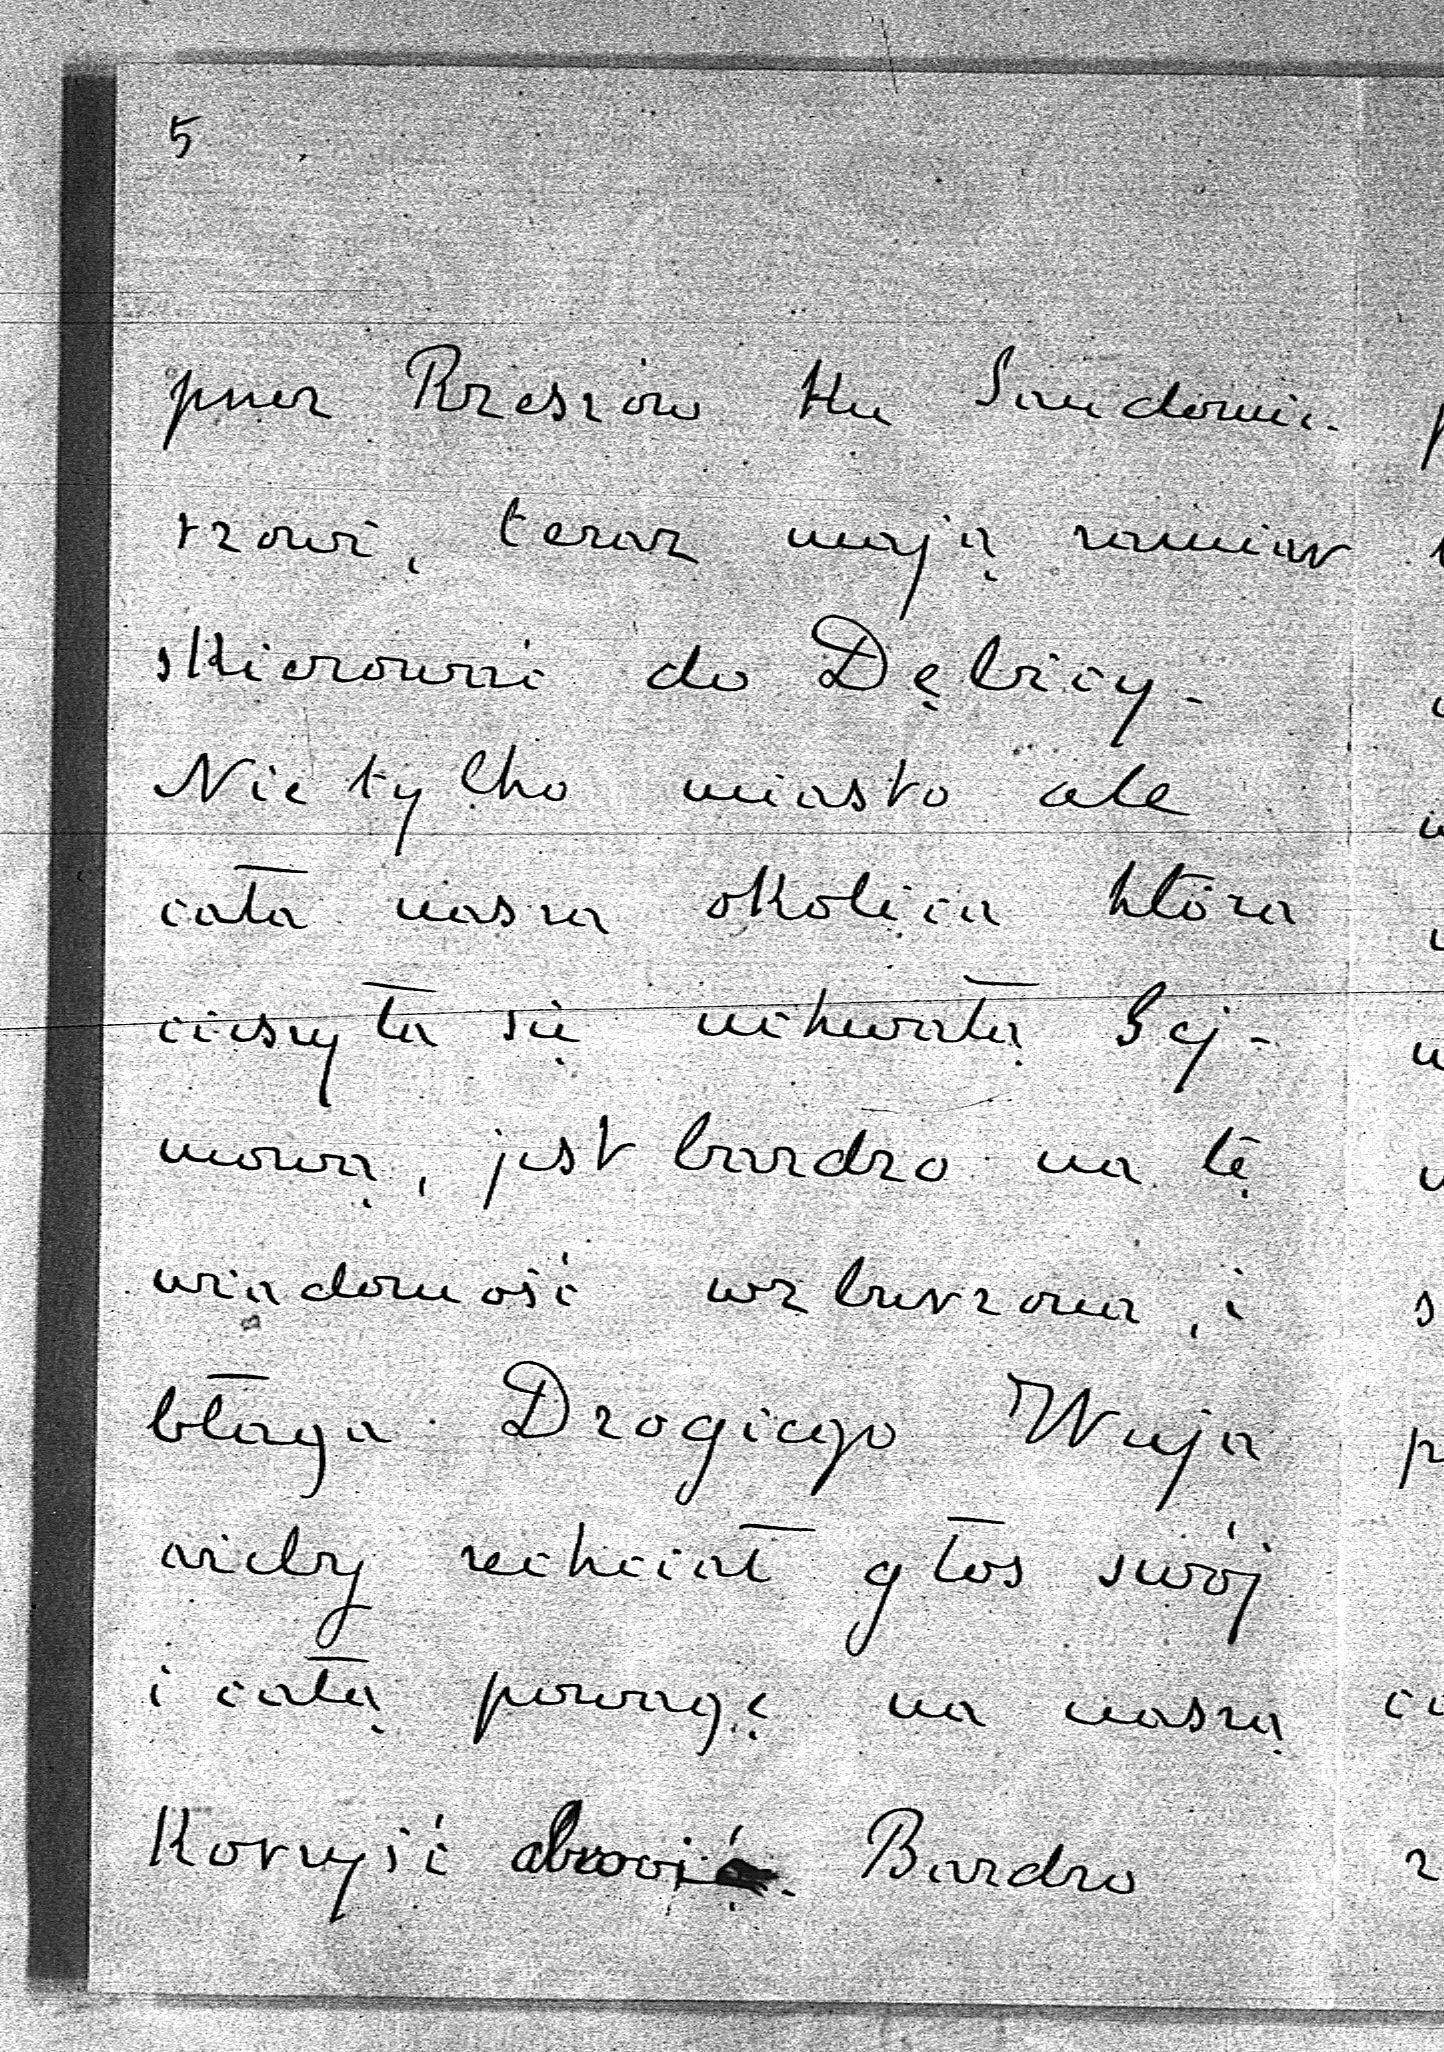 5
przez Rzeszów ku Sandomie-
rzowi, teraz mają zamiar
skierować do Dębicy.
Nie tylko miasto ale
cała nasza okolica która
cieszyła się uchwałą Sej-
mową, jest bardzo na tę
wiadomość wzburzona, i
błaga Drogiego Wuja
ażeby zechciał głos swój
i całą powagę na naszą
Korzyść Bardzo